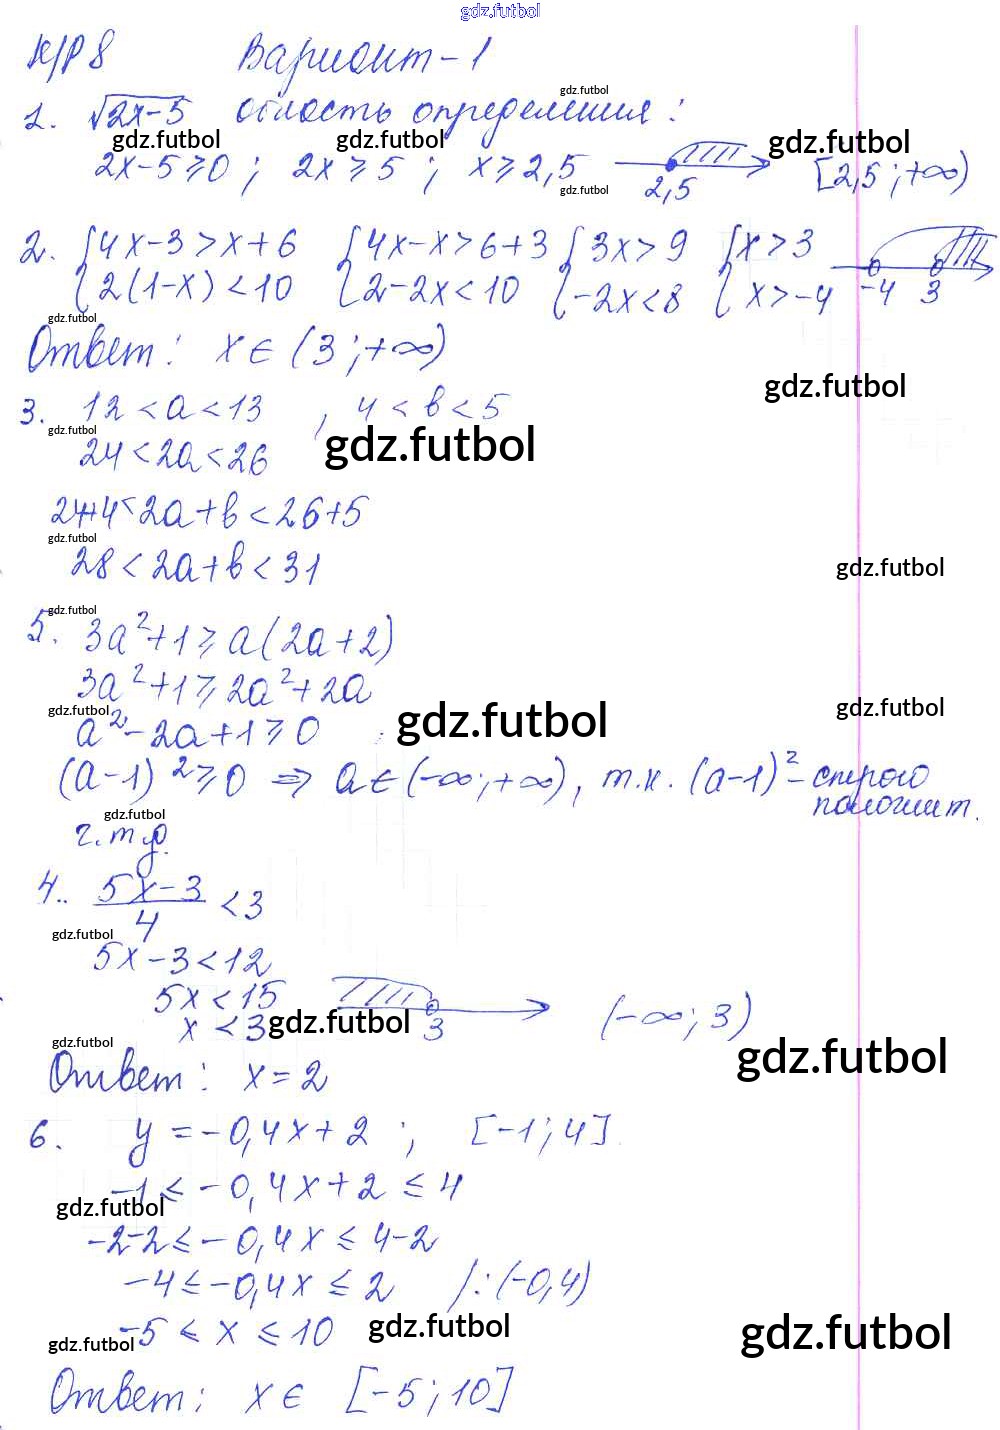 gdz.futbol
К/Р 8 Вариант - 1
1. √2x-5 область определения:
gdz.futbol
gdz.futbol gdz.futbol gdz.futbol
2x-5≥0; 2x≥5; x≥2,5 2,5 [2,5;+∞)
gdz.futbol
2. {4x-3>x+6 {4x-x>6+3 {3x>9 {x>3
{2(1-x)<10 {2-2x<10 {-2x<8 {x>-4 -4 3
gdz.futbol
Ответ: x∈(3;+∞)
gdz.futbol
3. 12<a<13, 4<b<5
gdz.futbol gdz.futbol
24<2a<26
24+4<2a+b<26+5
gdz.futbol
28<2a+b<31
gdz.futbol
gdz.futbol
5. 3a²+1≥a(2a+2)
3a²+1≥2a²+2a
gdz.futbol gdz.futbol gdz.futbol
a²-2a+1≥0
(a-1)²≥0 ⇒ a∈(-∞;+∞), т.к. (a-1)² - строго
положит.
gdz.futbol
ч.т.д.
4.. 5x-3/4 <3
gdz.futbol
5x-3<12
5x<15
x<3 gdz.futbol 3 (-∞;3)
gdz.futbol gdz.futbol
Ответ: x=2
6. y=-0,4x+2; [-1;4].
-1≤-0,4x+2≤4
gdz.futbol
-2-2≤-0,4x≤4-2
-4≤-0,4x≤2 /:(-0,4)
-5≤x≤10 gdz.futbol gdz.futbol
gdz.futbol
Ответ: x∈ [-5;10]